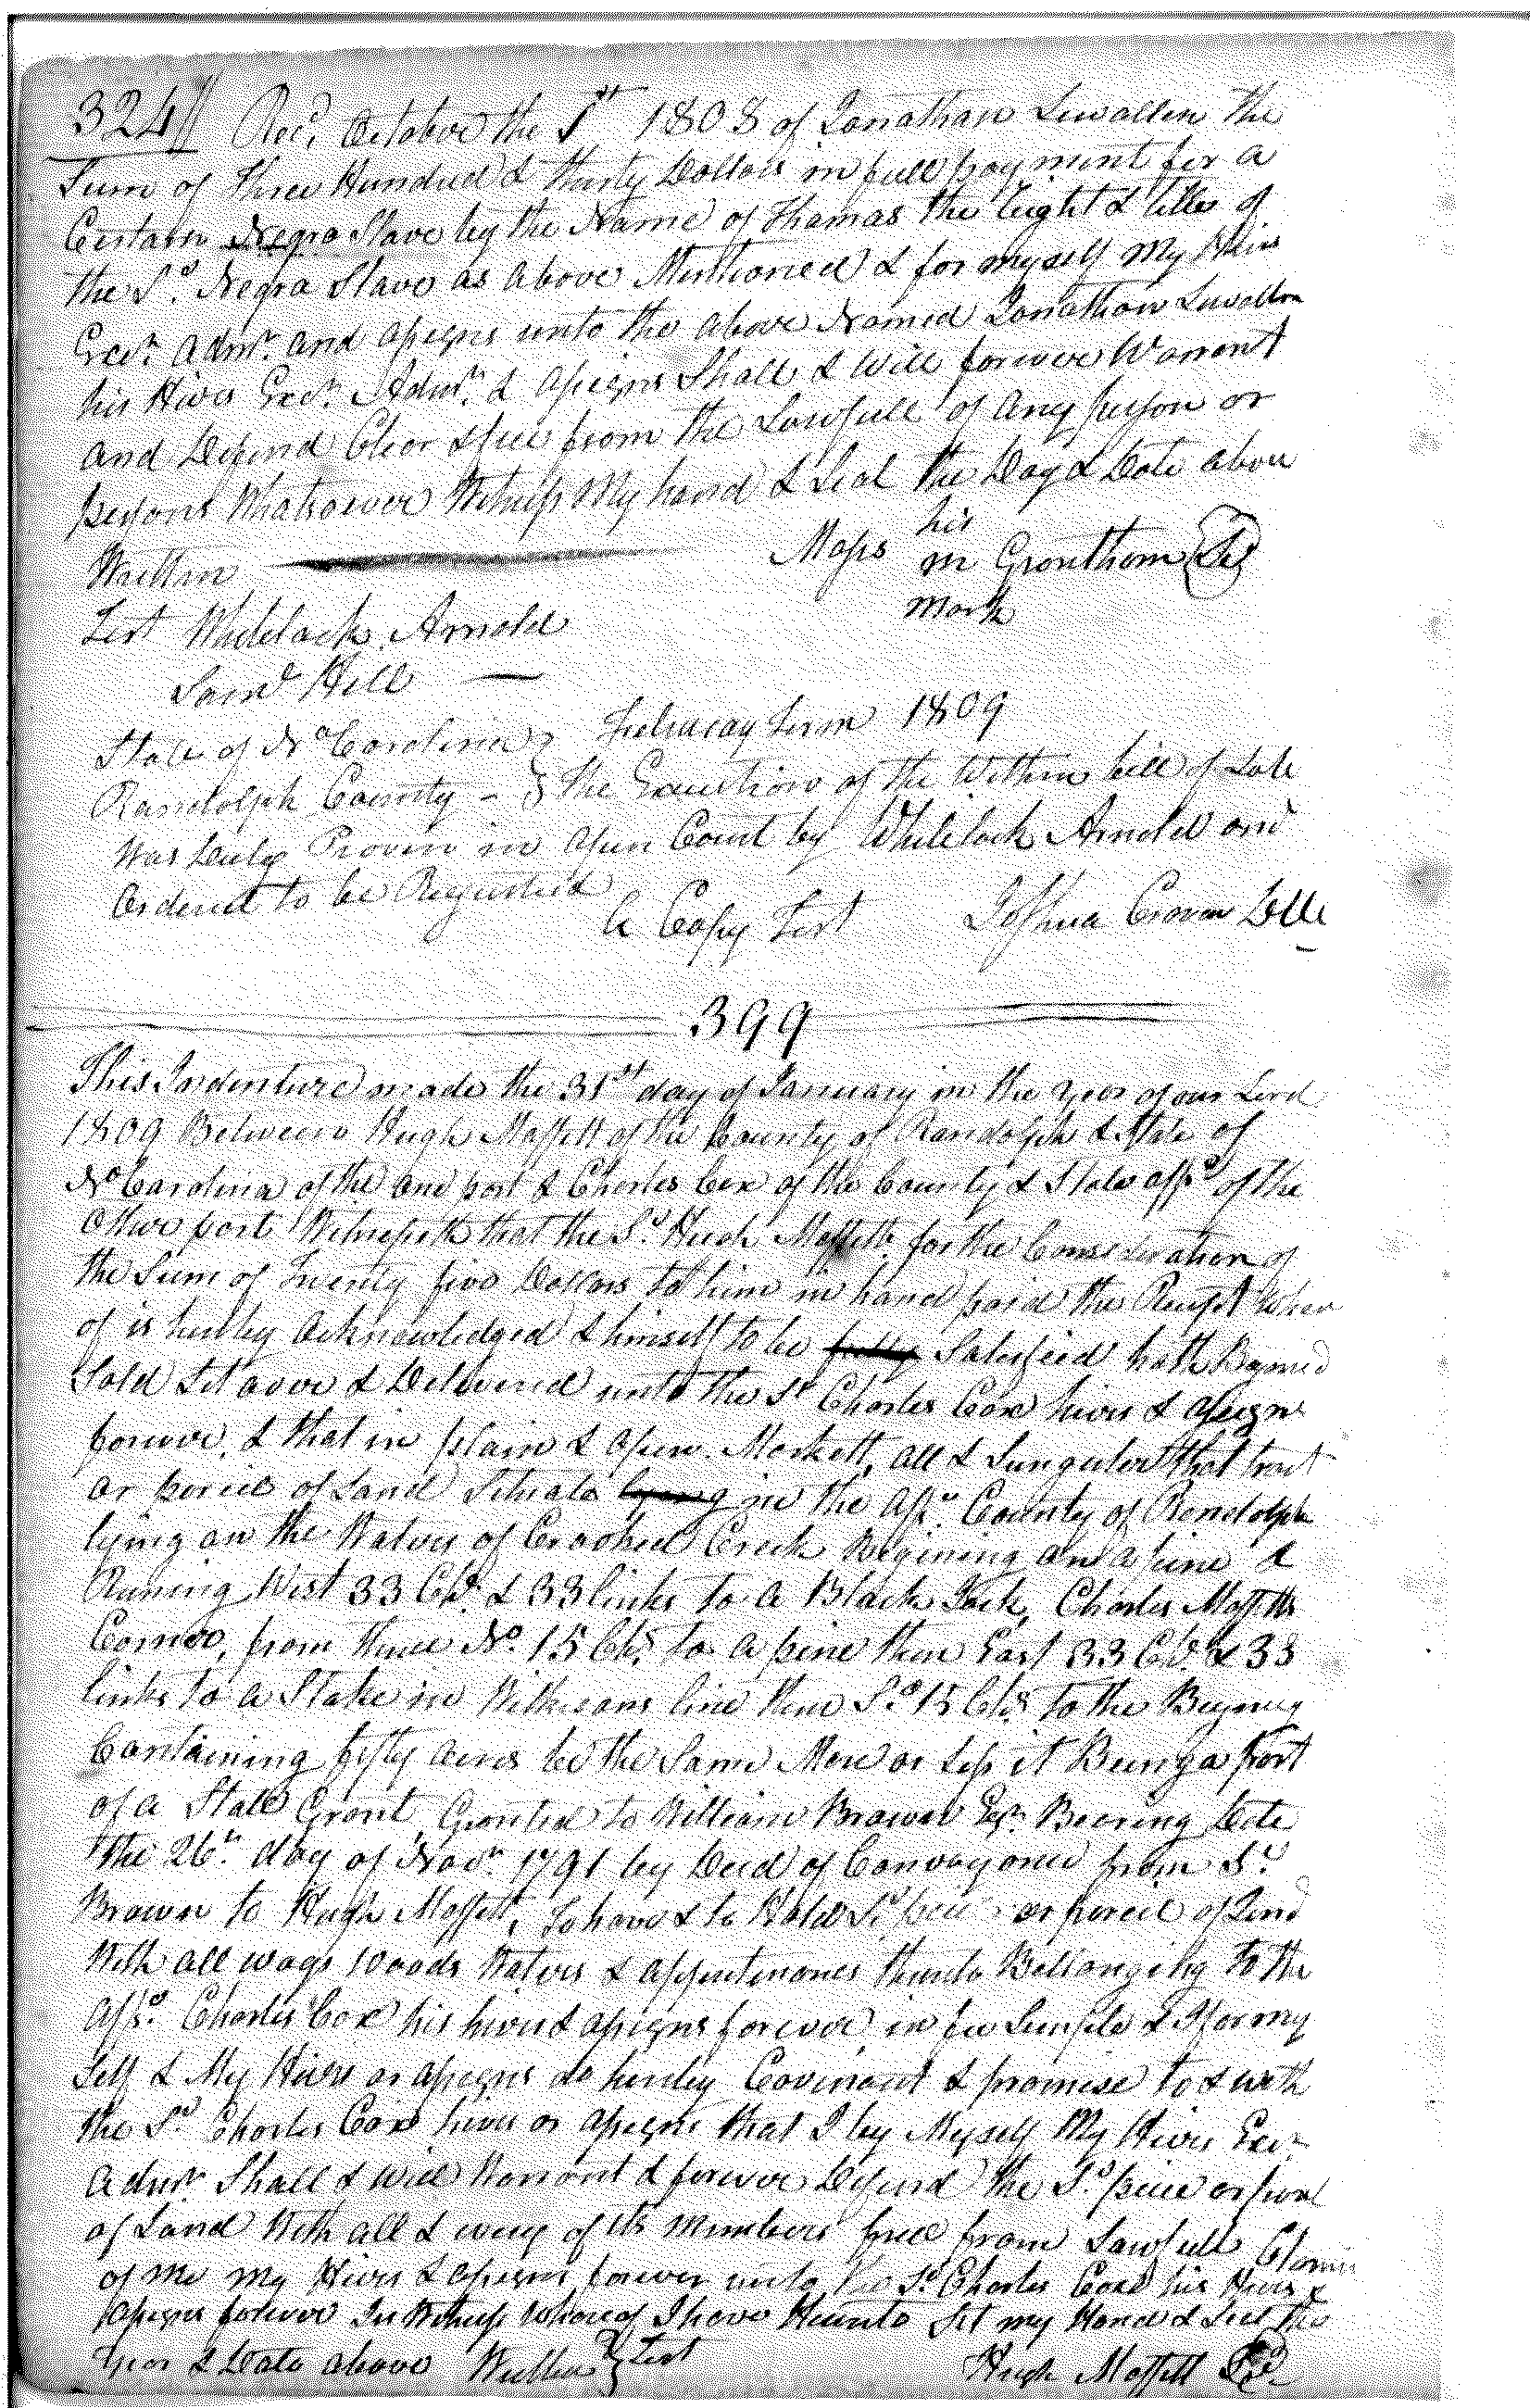 324 Recd. October the 1st 1808 of Jonathan Lewallen the
Sum of Three Hundred & thirty Dollars in full payment for a
Certain Negro Slave by the Name of Thomas the Right & title of
the Sd. Negro Slave as above Mentioned & for myself My Heirs
Excr. Admr. and assigns unto the above Named Jonathan Lewallen
his Heirs Excr. Admr. & assigns Shall & Will forever Warrent
and Defend Clear & free from the Lawfull of any person or
persons Whatsoever Witness My hand & Seal the Day & Date above
Written
his
Moses m Grantham Se
mark
Test Whitlock Arnold
Saml Hill
State of No Carolina } February Term 1809
Randolph County - } The Execution of the Within bill of Sale
Was Duly Proven in Open Court by Whitlock Arnold and
Ordered to be Registered
A Copy Test Joshua Craven
399
This Indenture made the 31st day of January in the year of our Lord
1809 Between Hugh Moffett of the County of Randolph & State of
No Carolina of the one part & Charles Cox of the County & State affd of the
other part Witnesseth that the Sd. Hugh Moffett for the Consideration of
the Sum of Twenty five Dollars to him in hand paid the Receipt Wher
of is hereby Acknowledged & himself to be fully Satisfied hath Bargained
Sold Set over & Delivered unto the Sd Charles Cox heirs & assigns
forever, & that in plain & open Markett, all & Singular that tract
or parcel of Land Situate lying in the afsd. County of Randolph
lying on the Waters of Crooked Creek Begining on a pine &
Runing West 33 Chs. & 33 links to a Black Jack, Charles Moffetts
Corner, from thence No. 15 Chs. to a pine then East 33 Chs. & 33
links to a Stake in Wilkesons line then So. 15 Chs. to the Begining
Containing fifty acres be the Same More or less it Being a part
of a State Grant Granted to William Brower Esqr. Bearing Date
the 26th. day of Novr. 1791 by Deed of Conveyance from Sd.
Brower to Hugh Moffett, To have & to Hold Sd. piece or parcel of Land
With all ways Woods Waters & appurtenances thereto Bellonging to the
affsd. Charles Cox his heirs & assigns forever in fee Simple & I for my
Self & My Heirs or assigns do hereby Covenant & promise to & with
the Sd. Charles Cox heirs or assigns that I by Myself My Heirs Excr
Admr Shall & will Warrant & forever Defend the Sd. piece or parcel
of Land With all & every of its Members free from Lawfull Claims
of me my Heirs & assigns forever unto the Sd. Charles Cox his Heirs &
assigns forever In Witness Whereof I have Hereunto Set my Hand & Seal the
year & Date above Written } Test Hugh Moffett